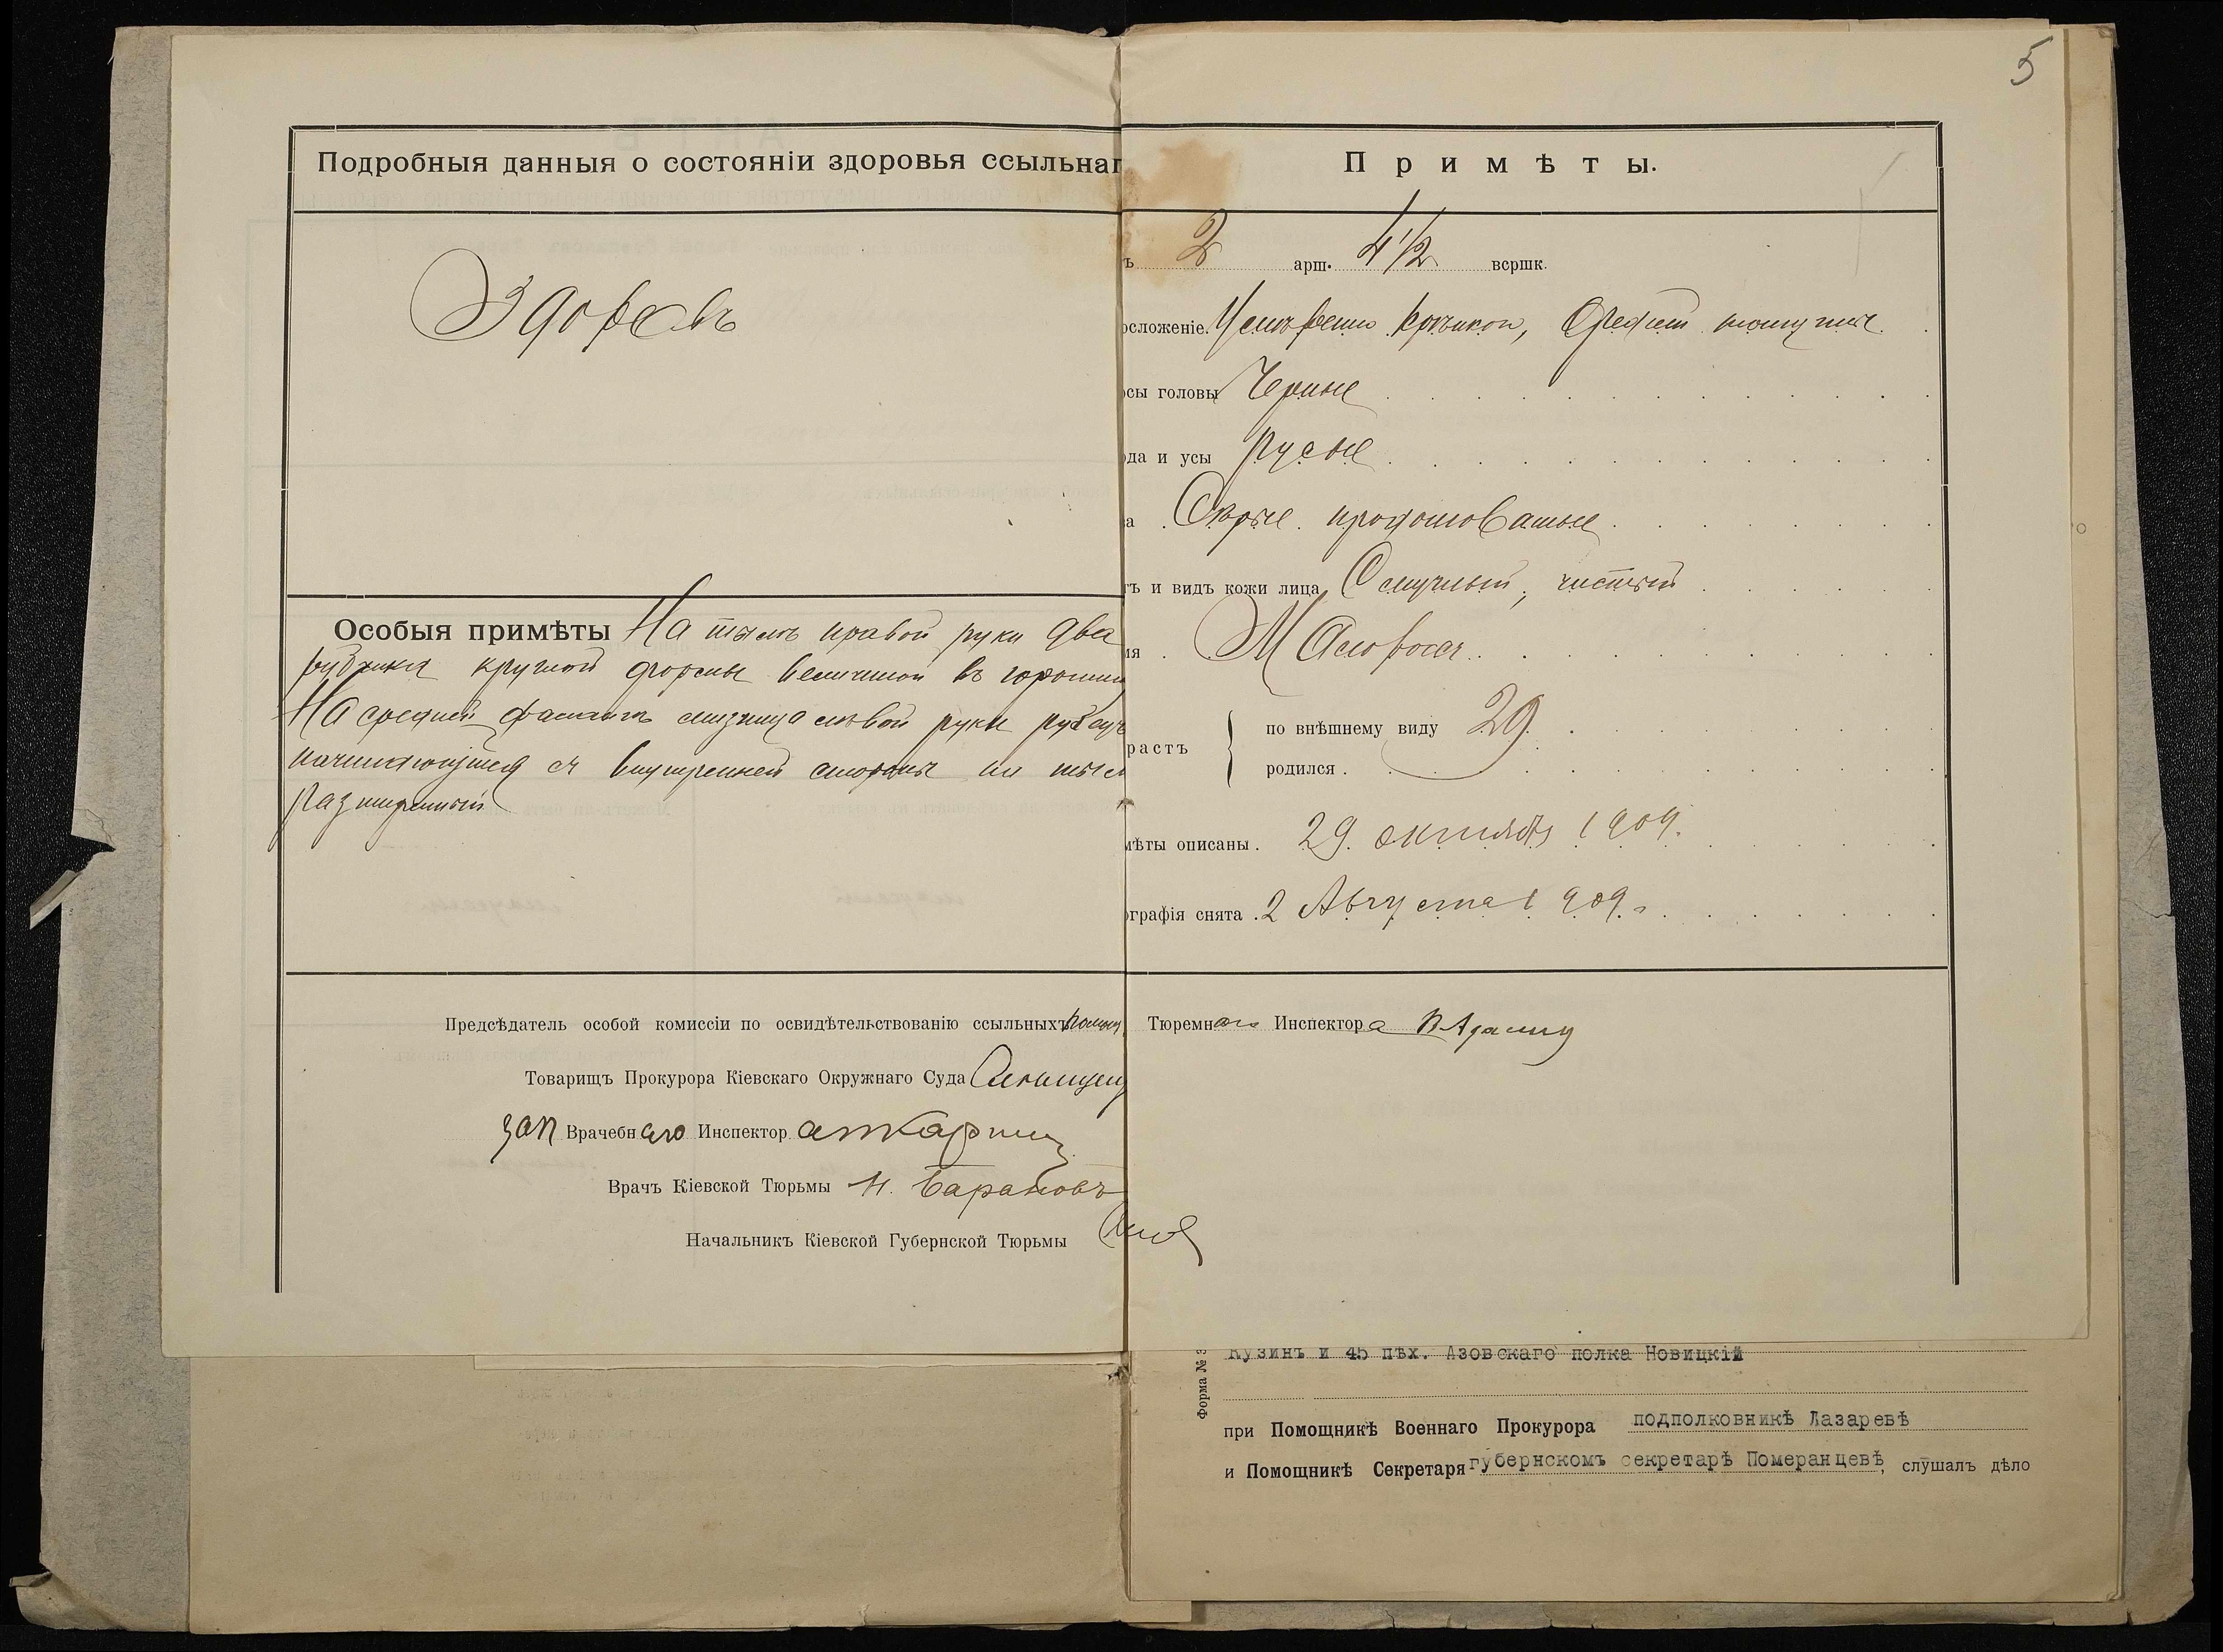 5
Подробныя данныя о состояніи здоровья ссыльнаг
Здоровъ
Особыя примѣты На тылѣ правой руки два
рубчика круглой формы величиной въ горошин
На средней фалангѣ мизинца лѣвой руки рубецъ
начинающійся съ внутренней стороны на тыл
Примѣты.
ъ 2 арш. 4 1/2 вершк.
осложеніе. Умѣренно крѣпкое, средней
осы головы Черные
ода и усы русые
а Сѣрые продолговатые
тъ и видъ кожи лица Смуглый, чистый
ія Малоросъ
растъ
по внѣшнему виду 29
родился
мѣты описаны. 29 октября 1909.
ографія снята. 2 Августа 1909.
Предсѣдатель особой комиссіи по освидѣтельствованію ссыльныхъ Помощ. Тюремнаго Инспектора
Товарищъ Прокурора Кіевскаго Окружнаго Суда
Врачебнаго Инспектор
Врачъ Кіевской Тюрьмы Н. Барановъ
Начальникъ Кіевской Губернской Тюрьмы
Форма № 3
Кузинъ и 45 пѣх. Азовскаго полка Новицкій
при Помощникѣ Военнаго Прокурора подполковникѣ Лазаревѣ
и Помощникѣ Секретаря губернскомъ секретарѣ Померанцевѣ, слушалъ дѣло